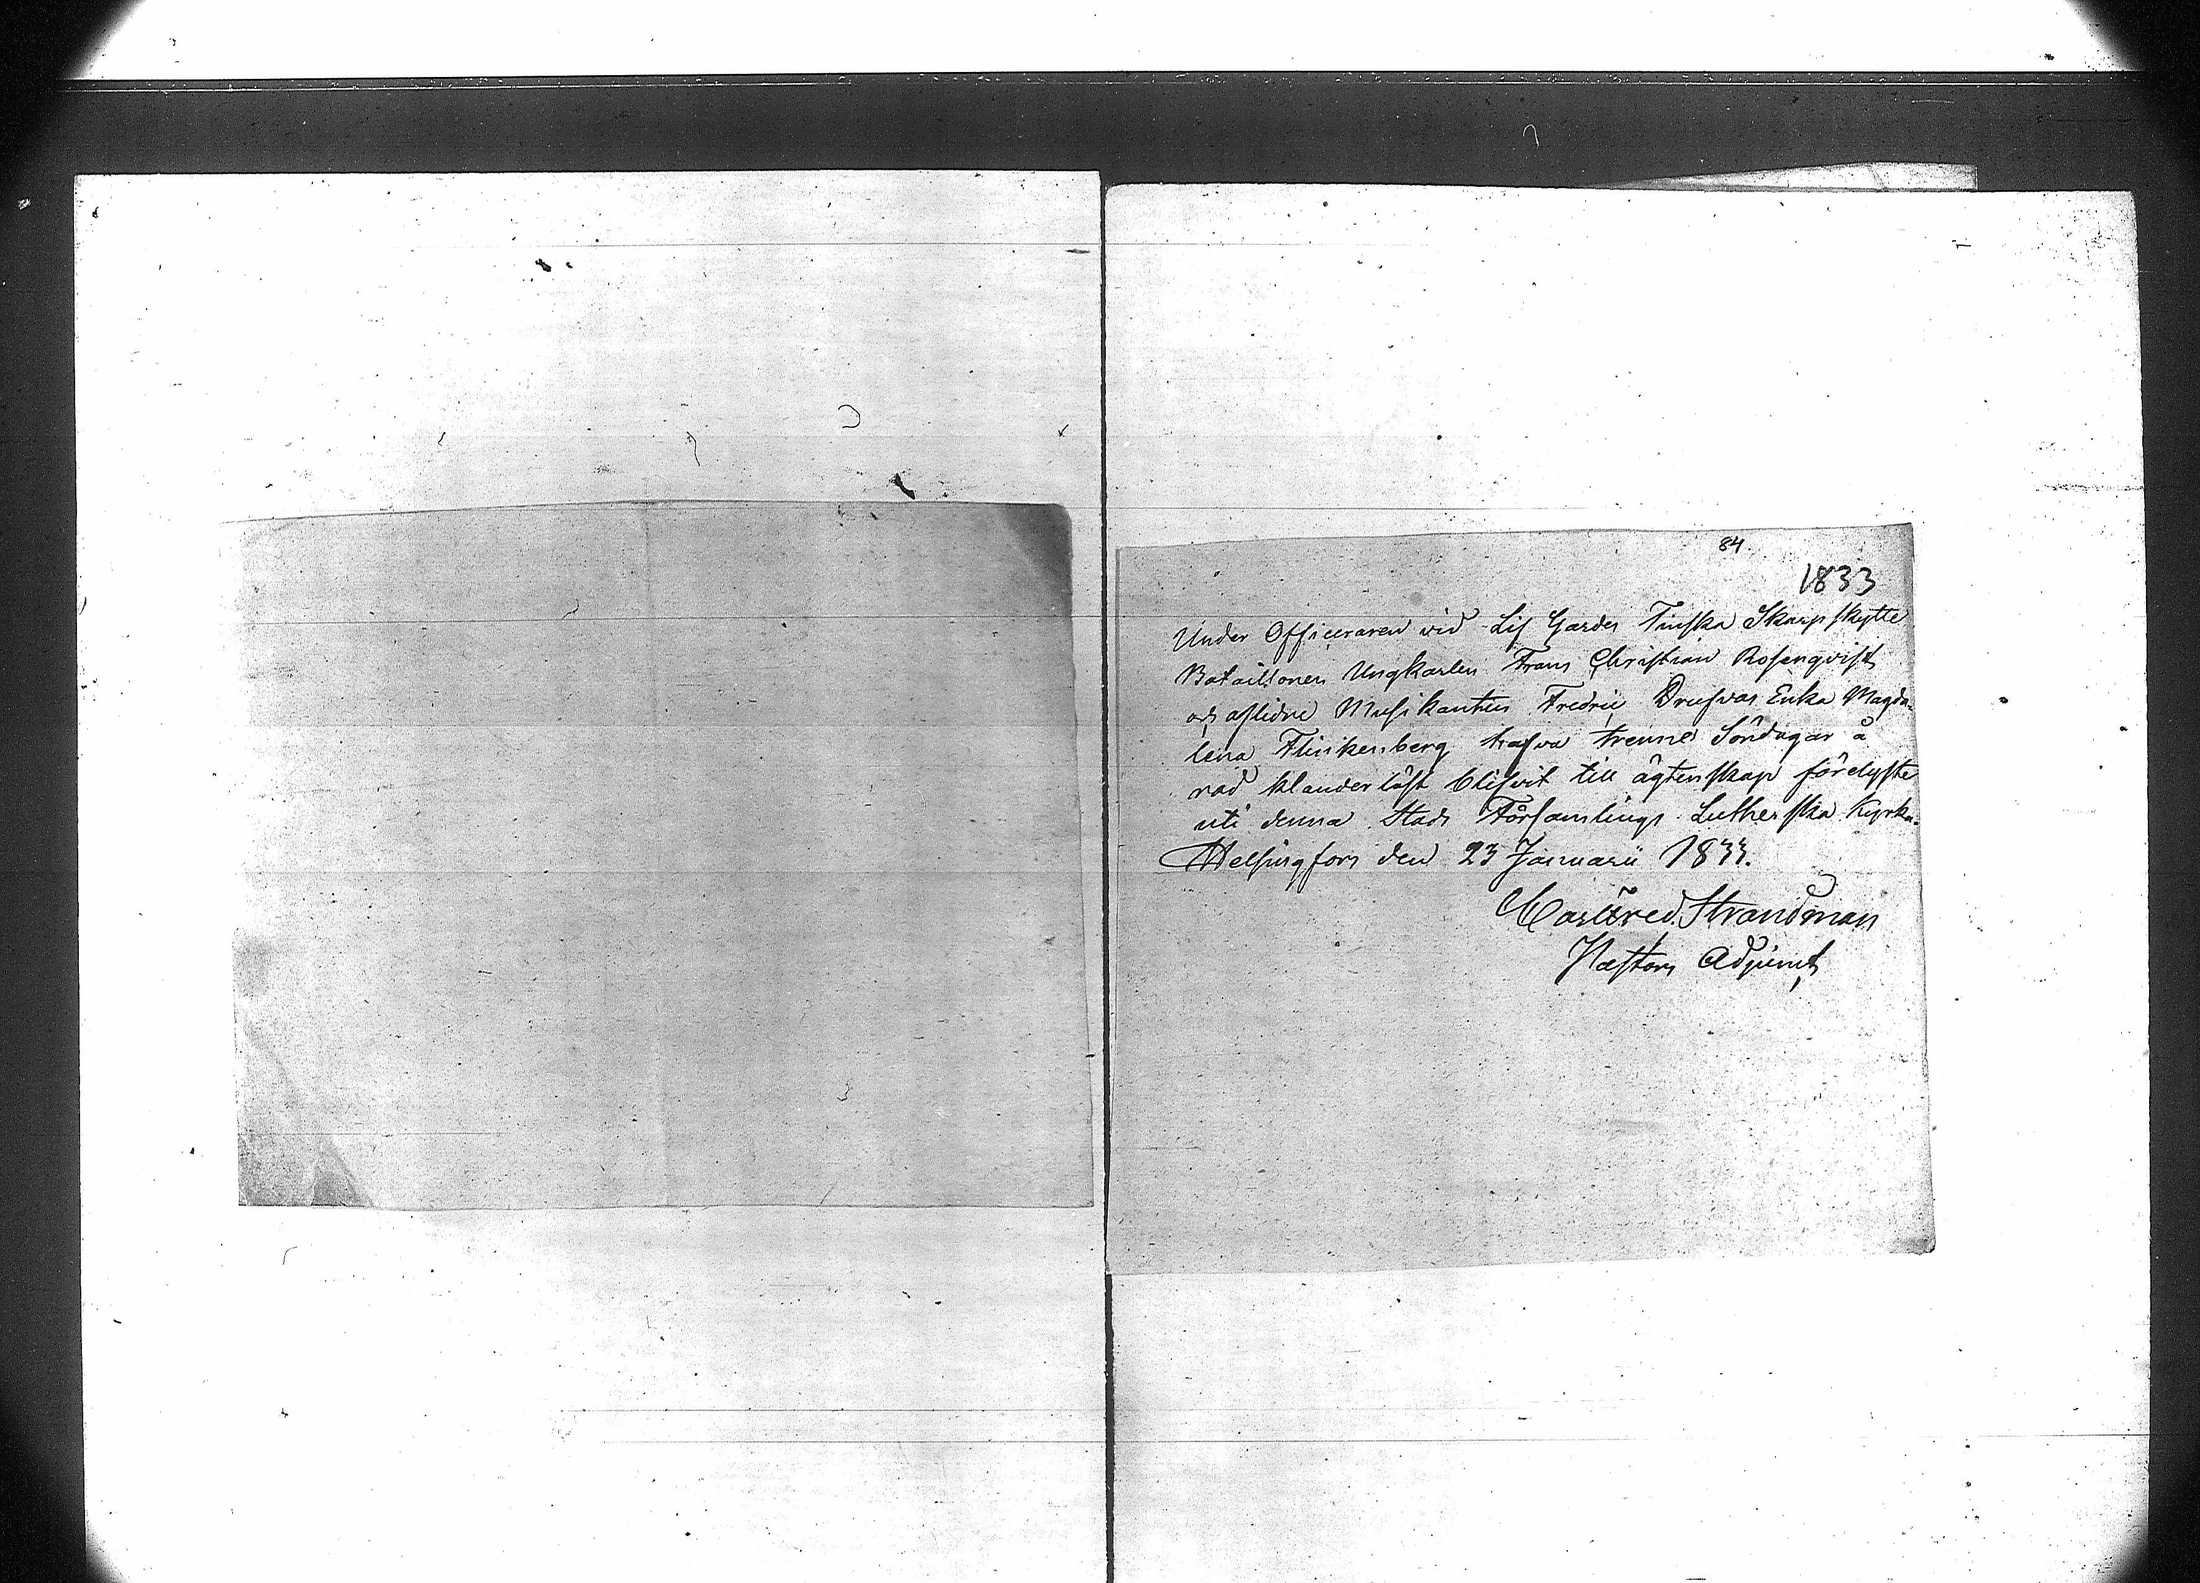 84.
1833
Under Officeraren vid Lif Gardes Finska Skarpskytte
Bataillonen Ungkarlen Frans Christian Rosenqvist
och aflidne Musikanten Fredric Enka Magda-
lena Flinkenberg hafva trenne Söndagar å
rad klanderlöst blifvit till ägtenskap förelyste
uti denna Stads Församlings Lutherska Kyrka.
Helsingfors den 23 Januarii 1833.
Carl Fred. Strandman
Pastors Adjunct